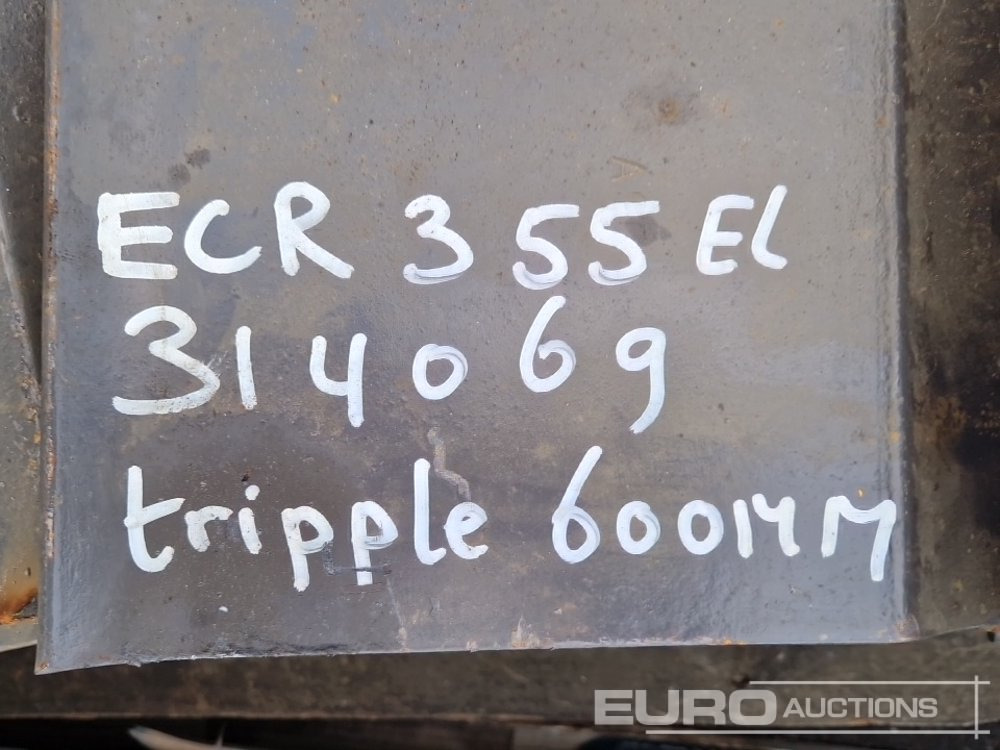 ECR 355 EL
314069
tripple 600MM
EURO AUCTIONS